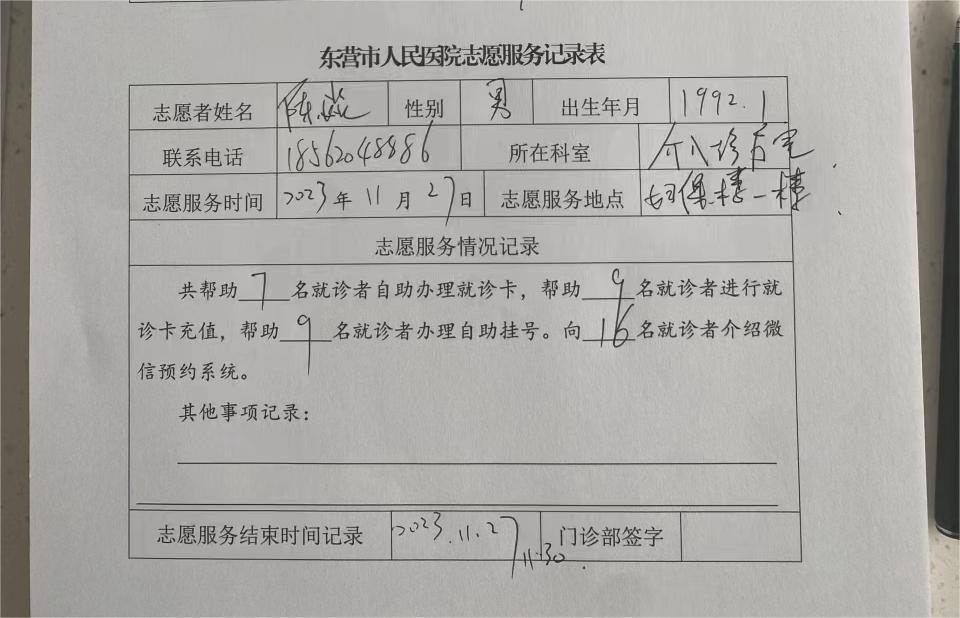 东营市人民医院志愿服务记录表
志愿者姓名 陈焱 性别 男 出生年月 1992.1
联系电话 18562048886 所在科室 介入诊疗室
志愿服务时间 2023年 11月 27日 志愿服务地点 妇保楼一楼
志愿服务情况记录
共帮助 7 名就诊者自助办理就诊卡，帮助 9 名就诊者进行就
诊卡充值，帮助 9 名就诊者办理自助挂号。向 16 名就诊者介绍微
信预约系统。
其他事项记录：
志愿服务结束时间记录 2023.11.27 11.30 门诊部签字